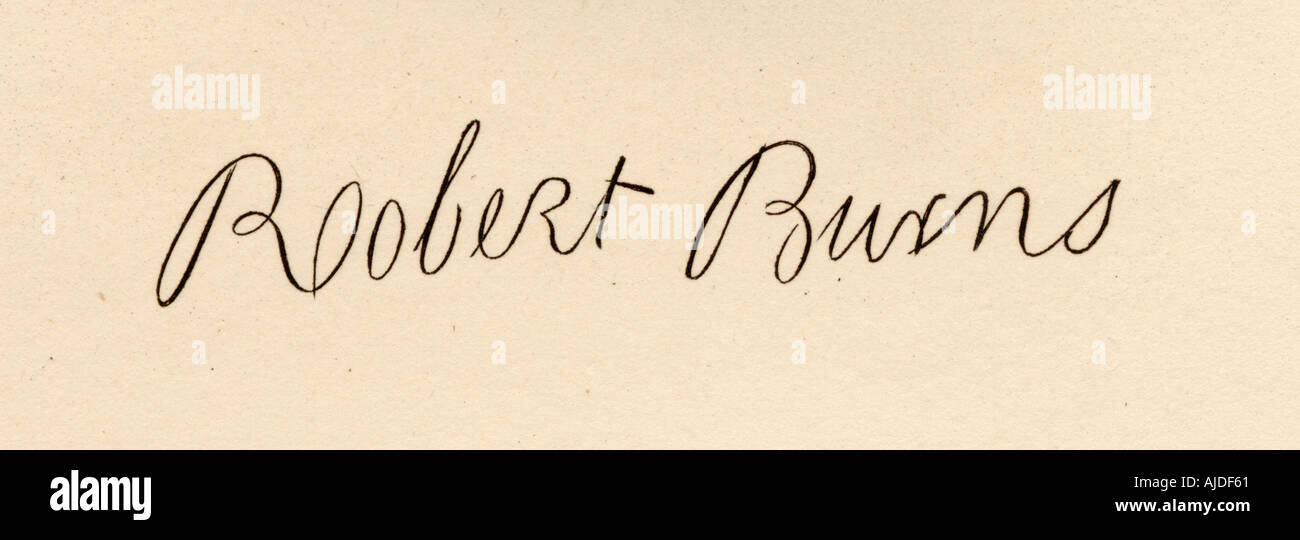 alamy a a alamy
Robert Burns
a a alamy a a
a a a a
alamy Image ID: AJDF61
www.alamy.com